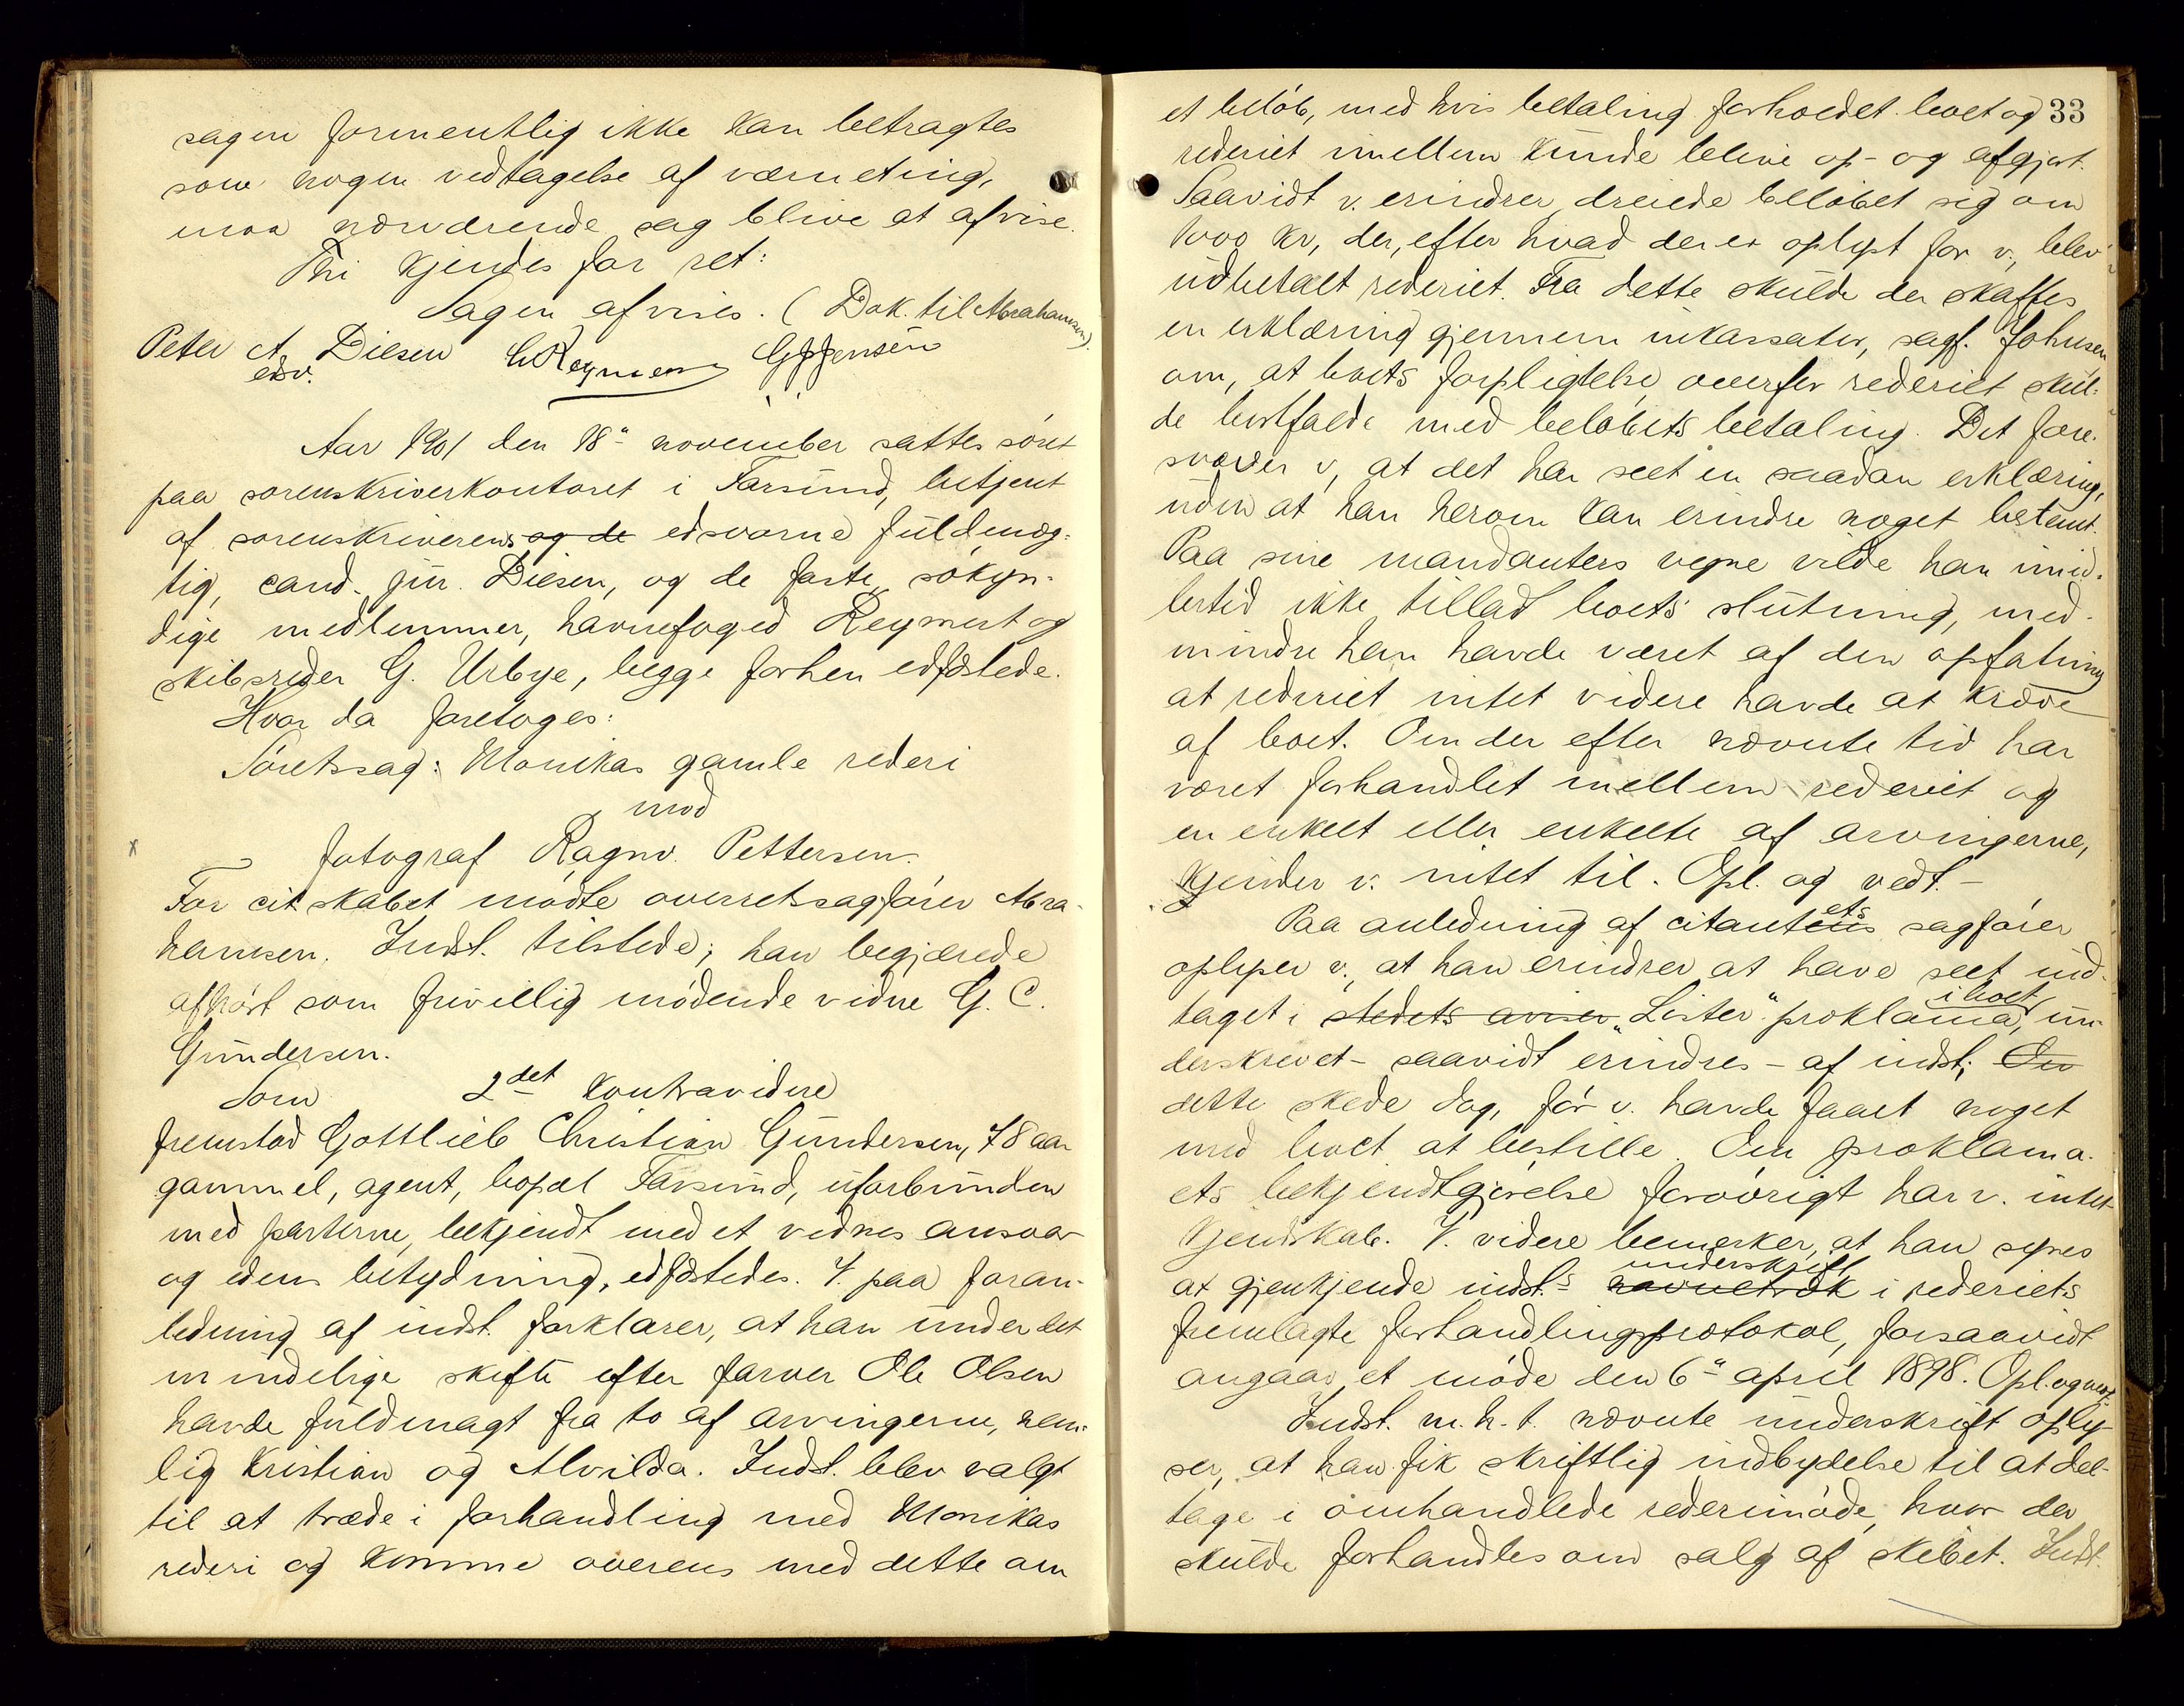 sagen formentlig ikke kan betragtes
som nogen vedtagelse af værneting,
maa nærværende sag blive at afvise.
Thi kjendes for ret:
Sagen afvises. (Dok. til Abrahamsen).
Peter A. Diesen C Reymert G J Jensen
edsv.
Aar 1901 den 18de november sattes søret
paa sorenskriverkontoret i Farsund, betjent
af sorenskriverens og de edsvorne fuldmæg-
tig, cand. jur. Diesen, og de faste, søkyn-
dige medlemmer, havnefoged Reymert og
skibsreder G. Urbye, begge forhen edfæstede.
Hvor da foretoges:
Søretssag: Monikas gamle rederi
mod
fotograf Ragnv. Pettersen.
For citskabet mødte overretssagfører Abra-
hamsen. Indst. tilstede; han begjærede
afhørt som frivillig mødende vidne G. C.
Gundersen.
Som 2det kontravidne
fremstod Gottlieb Christian Gundersen, 78 aar
gammel, agent, bopæl Farsund, uforbunden
med parterne, bekjendt med et vidnes ansvar
og edens betydning, edfæstedes. V. paa foran-
ledning af indst. forklarer, at han under det
mindelige skifte efter farver Ole Olsen
havde fuldmagt fra to af arvingerne, nem-
lig Kristian og Alvilda. Indst. blev valgt
til at træde i forhandling med Monikas
rederi og komme overens med dette om
33
et beløb, med hvis betaling forholdet boet og
rederiet imellem kunde blive op- og afgjort.
Saavidt v. erindrer, dreiede beløbet sig om
1000 kr, der, efter hvad der er oplyst for v., blev
udbetalt rederiet. Fra dette skulde der skaffes
en erklæring gjennem inkassator, sagf. Johnsen
om, at boets forpligtelse overfor rederiet skul-
de bortfalde med beløbets betaling. Det fore-
svæver v., at det har seet en saadan erklæring,
uden at han herom kan erindre noget bestemt.
Paa sine mandanters vegne vilde han imid-
lertid ikke tilladt boets slutning, med-
mindre han havde været af den opfatning
at rederiet intet videre havde at kræve
af boet. Om der efter nævnte tid har
været forhandlet mellem rederiet og
en enkelt eller enkelte af arvingerne,
kjender v. intet til. Opl. og vedt. –
Paa anledning af citantens ets sagfører
oplyser v., at han erindrer at have seet ind-
taget i stedets aviser „Lister“ proklama i boet, un-
derskrevet – saavidt erindres – af indst; Om
dette skede dog, før v. havde faaet noget
med boet at bestille. Om proklama-
ets bekjendtgjørelse forøvrigt har v. intet
kjendskab. V. videre bemerker, at han synes
at gjenkjende indst.s navnetræk underskrift i rederiets
fremlagte forhandlingsprotokol, forsaavidt
angaar et møde den 6te april 1898. Opl. og vedt.
Indst. m. h. t. nævnte underskrift oply-
ser, at han fik skriftlig indbydelse til at del-
tage i omhandlede rederimøde, hvor der
skulde forhandles om salg af skibet. Indst.